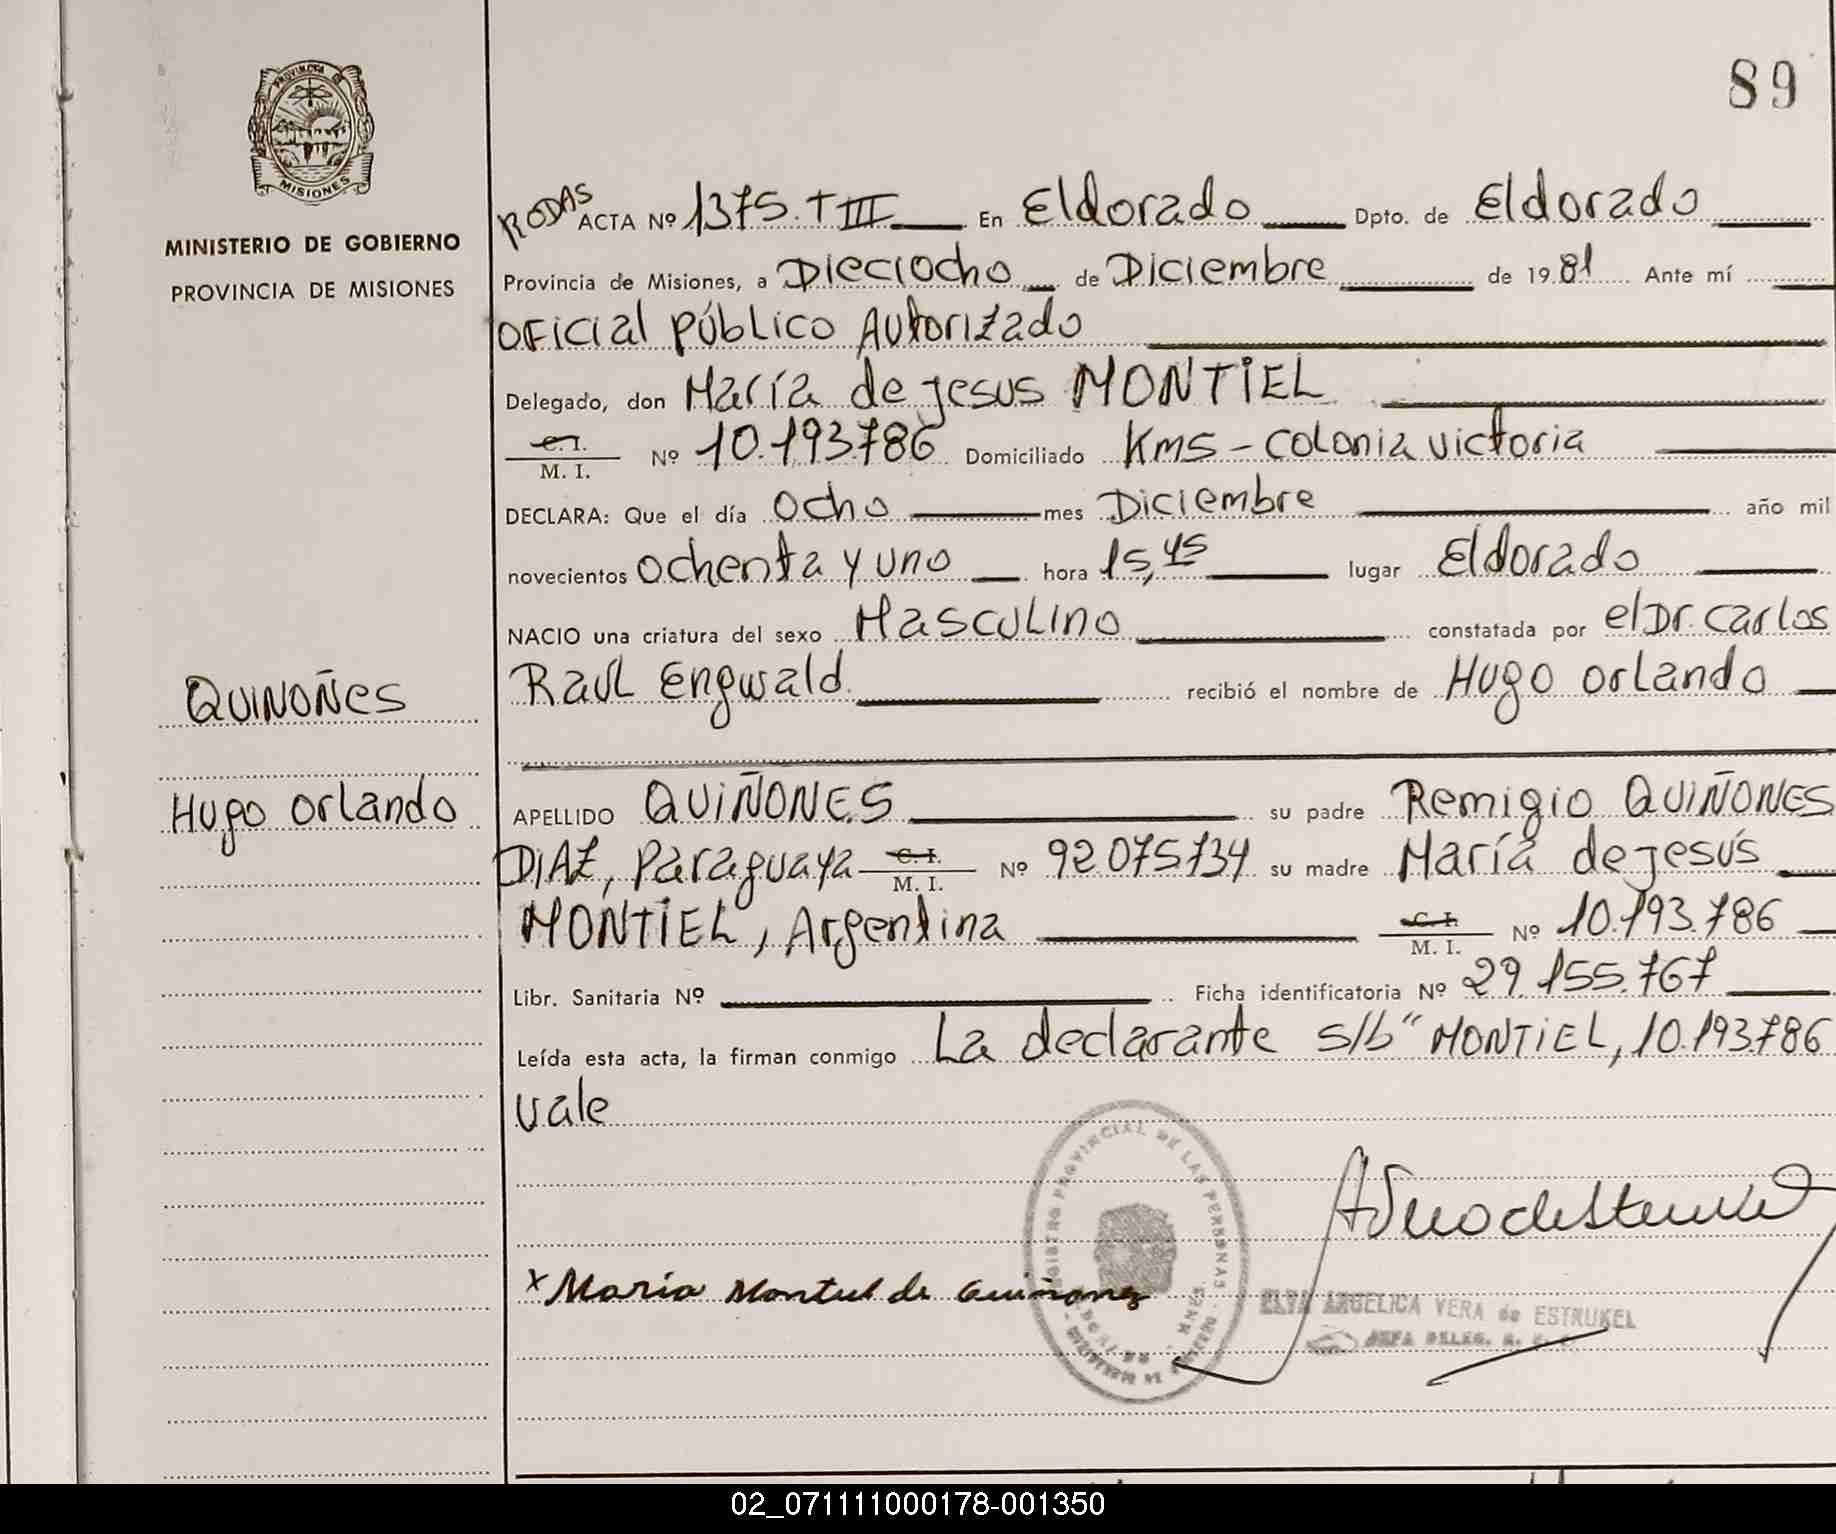 89
PROVINCIA DE
MISIONES
MINISTERIO DE GOBIERNO
PROVINCIA DE MISIONES
QUINOÑES
Hugo Orlando
RODAS ACTA Nº 1375. T III En Eldorado Dpto. de Eldorado
Provincia de Misiones, a Dieciocho de Diciembre de 19 81 Ante mí
OFicial PÚBLICO AUtorizado
Delegado, don María de Jesus MONTIEL
C. I. / M. I. Nº 10.193.786 Domiciliado Km5 - COLONIA VICTORIA
DECLARA: Que el día Ocho mes Diciembre año mil
novecientos Ochenta y uno hora 15,45 lugar Eldorado
NACIO una criatura del sexo MASCULINO constatada por el Dr. Carlos
Raul Engwald recibió el nombre de Hugo Orlando
APELLIDO QUIÑONES su padre Remigio QUIÑONES
DIAZ, Paraguaya C. I. / M. I. Nº 92.075.734 su madre María de Jesús
MONTIEL, Argentina C. I. / M. I. Nº 10.193.786
Libr. Sanitaria Nº Ficha identificatoria Nº 29.155.767
Leída esta acta, la firman conmigo La declarante s/b" MONTIEL, 10.193.786
vale
REGISTRO PROVINCIAL DE LAS PERSONAS
x Maria Montiel de Quiñonez
ELVA ANGELICA VERA de ESTRUKEL
JEFA DELEG. R. P.
02_071111000178-001350